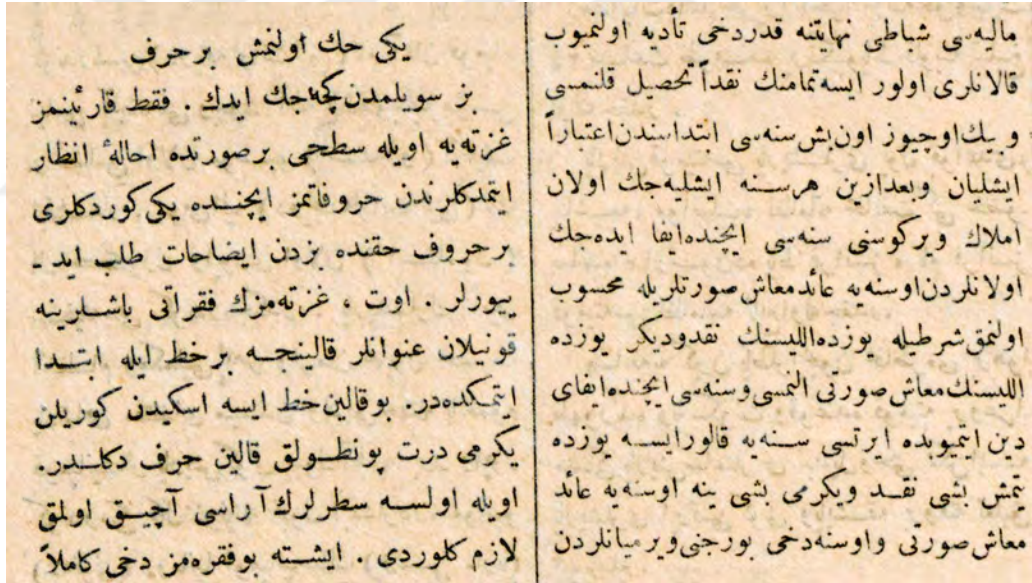 مالیه‌سی شباطی نهایتنه قدر دخی تأدیه اولنمیوب
قالانلری اولور ایسه تمامنك نقداً تحصیل قلنمسی
و بیك اوچیوز اون بش سنه‌سی ابتداسندن اعتباراً
ایشلیان وبعدازین هرسنه ایشلیه‌جك اولان
املاك ویرکوسنی سنه‌سی ایچنده ایفا ایده‌جك
اولانلردن اوسنه‌یه عائد معاش صورتلریله محسوب
اولنمق شرطیله یوزده اللیسنك نقد ودیكر یوزده
اللیسنك معاش صورتی النمسی وسنه‌سی ایچنده ایفای
دین ایتمیوبده ایرتسی سنه‌یه قالورایسه یوزده
یتمش بشی نقد ویكرمی بشی ینه اوسنه‌یه عائد
معاش صورتی واوسنه‌دخی بورجنی ویرمیانلردن
یكی حك اولنمش بر حرف
بز سویلمدن كچه‌جك ایدك . فقط قارئینمز
غزته‌یه اویله سطحی برصورتده احالهٔ انظار
ایتمدكلرندن حروفاتمز ایچنده یكی كوردكلری
برحروف حقنده بزدن ایضاحات طلب اید ـ
ییورلر . اوت ، غزته‌مزك فقراتی باشلرینه
قونیلان عنوانلر قالینجه برخط ایله ابتدا
ایتمكده‌در. بوقالین خط ایسه اسكیدن كوریلن
یكرمی درت پونطولق قالین حرف دكلدر.
اویله اولسه سطرلرك آراسی آچیق اولمق
لازم كلوردی . ایشته بوفقره‌مز دخی كاملاً